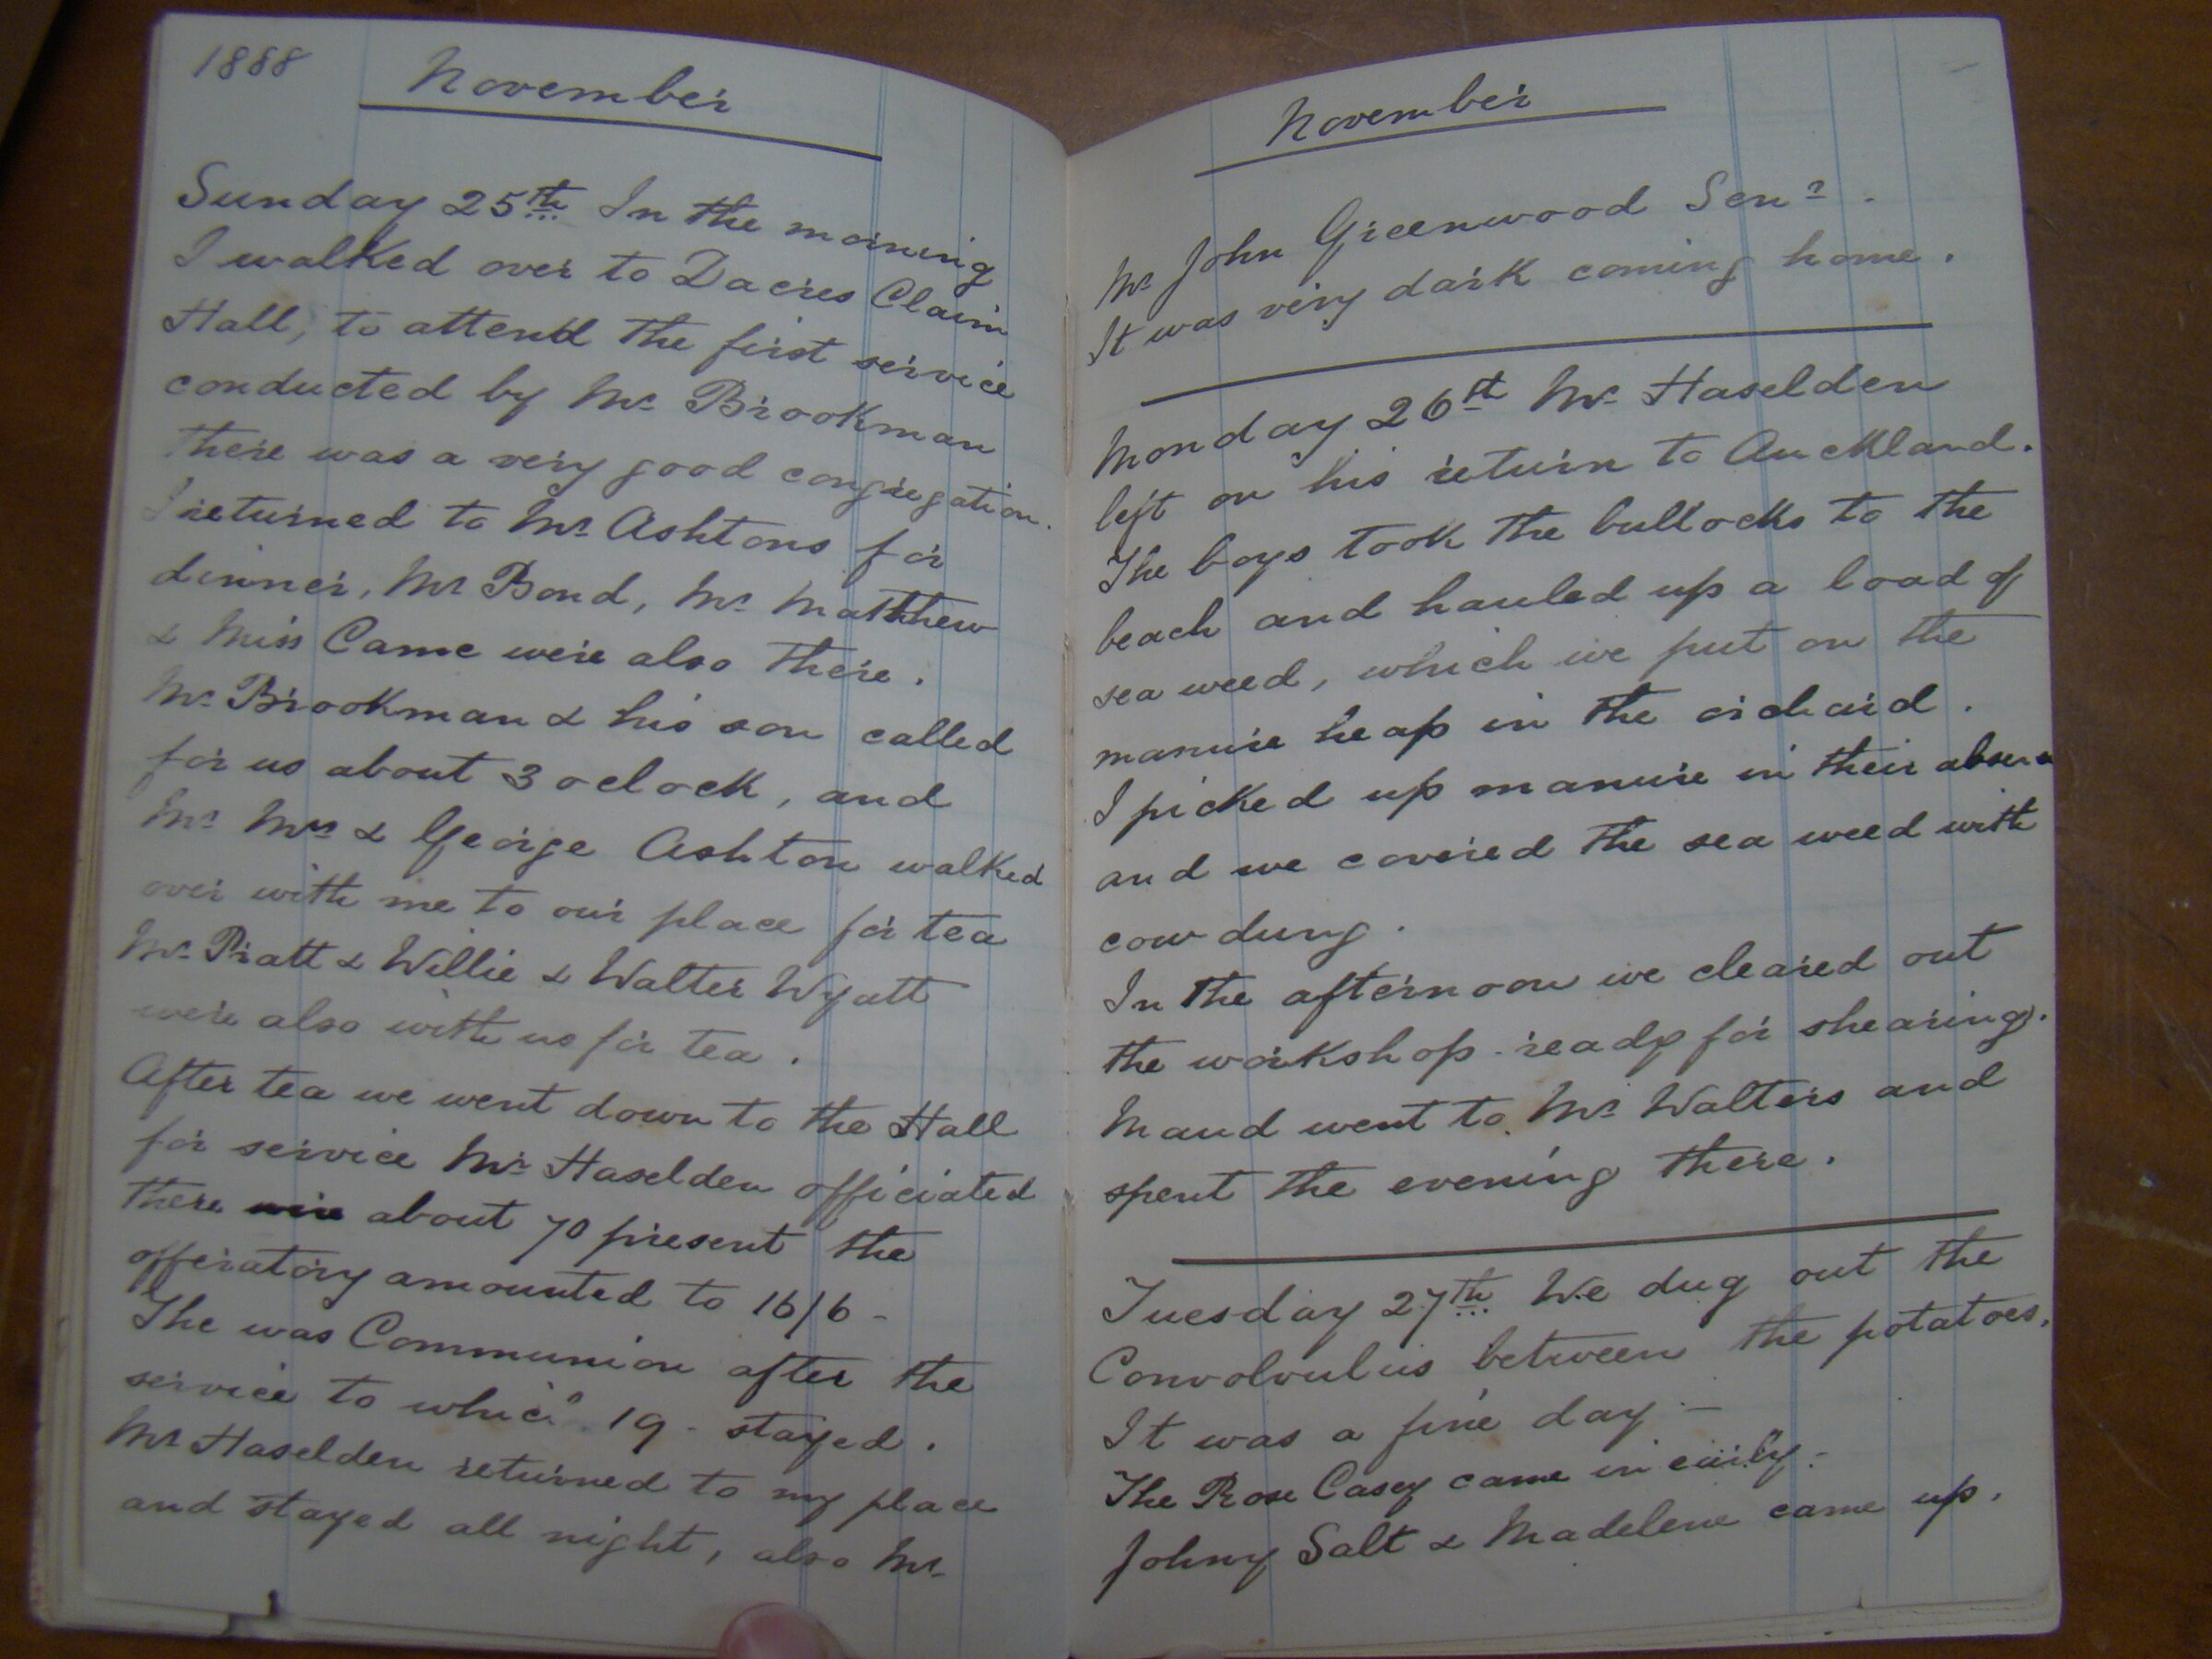 1888
November
Sunday 25th In the morning
I walked over to Dacres Claim
Hall, to attend the first service
conducted by Mr Brookman
there was a very good congregation.
I returned to Mr Ashtons for
dinner, Mr Bond, Mr Matthew
& Miss Came were also there.
Mr Brookman & his son called
for us about 3 oclock, and
Mr Mrs & George Ashton walked
over with me to our place for tea
Mr Pratt & Willie & Walter Wyatt
were also with us for tea.
After tea we went down to the Hall
for service Mr Haselden officiated
there were about 70 present the
offeratory amounted to 16/6 -
The was Communion after the
service to which 19 - stayed.
Mr Haselden returned to my place
and stayed all night, also Mr
November
Mr John Greenwood Senr.
It was very dark coming home.
Monday 26st Mr Haselden
left on his return to Auckland.
The boys took the bullocks to the
beach and hauled up a load of
sea weed, which we put on the
manure heap in the orchard.
I picked up manure in their absence
and we covered the sea weed with
cow dung.
In the afternoon we cleared out
the workshop ready for shearing.
Maud went to Mr Walters and
spent the evening there.
Tuesday 27th We dug out the
Convolvulus between the potatoes.
It was a fine day -
The Rose Casey came in early -
Johny Salt & Madelene came up.